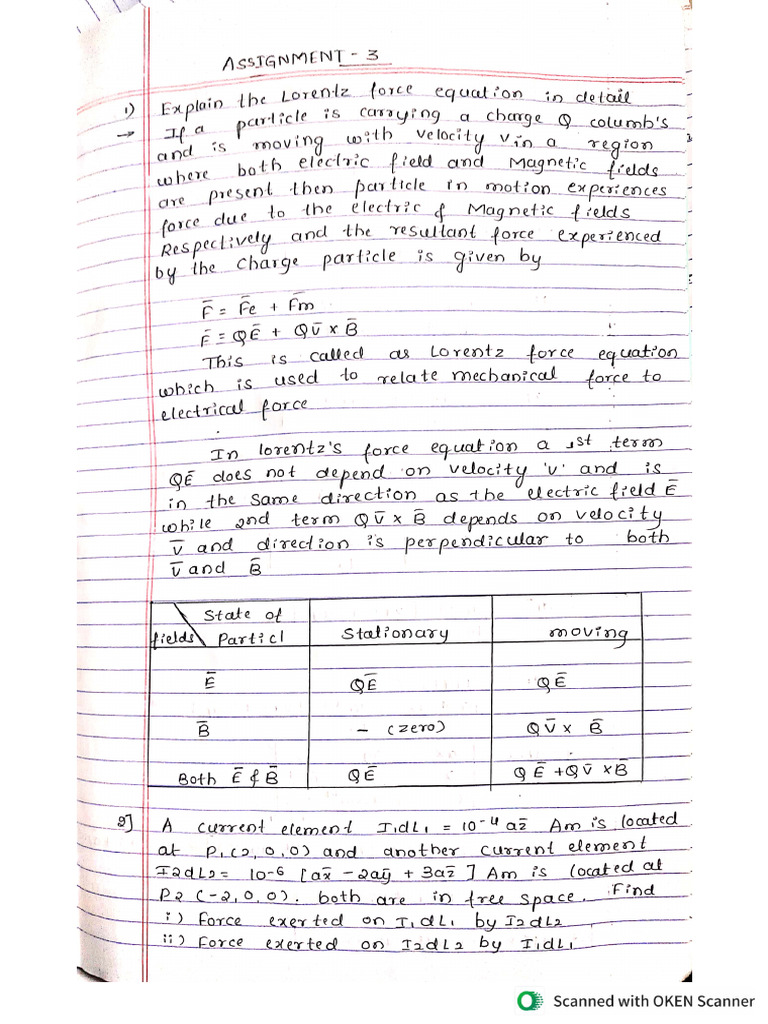 ASSIGNMENT - 3
1) Explain the Lorentz force equation in detail
→ If a particle is carrying a charge Q columb's
and is moving with velocity v in a region
where both electric field and Magnetic fields
are present then particle in motion experiences
force due to the electric & Magnetic fields
Respectively and the resultant force experienced
by the charge particle is given by
F̄ = F̄e + F̄m
F̄ = QĒ + Qv̄ × B̄
This is called as Lorentz force equation
which is used to relate mechanical force to
electrical force
In lorentz's force equation a 1st term
QĒ does not depend on velocity 'v' and is
in the same direction as the electric field Ē
while 2nd term Qv̄ × B̄ depends on velocity
v̄ and direction is perpendicular to both
v̄ and B̄
State of
fields Particl Stationary moving
Ē QĒ QĒ
B̄ - (zero) Qv̄ × B̄
Both Ē & B̄ QĒ QĒ + Qv̄ × B̄
2] A current element I1dL1 = 10-4 az̄ Am is located
at P1(2,0,0) and another current element
I2dL2 = 10-6 [ax̄ - 2aȳ + 3az̄] Am is located at
P2 (-2,0,0). both are in free space. Find
i) Force exerted on I1dL1 by I2dL2
ii) Force exerted on I2dL2 by I1dL1
Scanned with OKEN Scanner